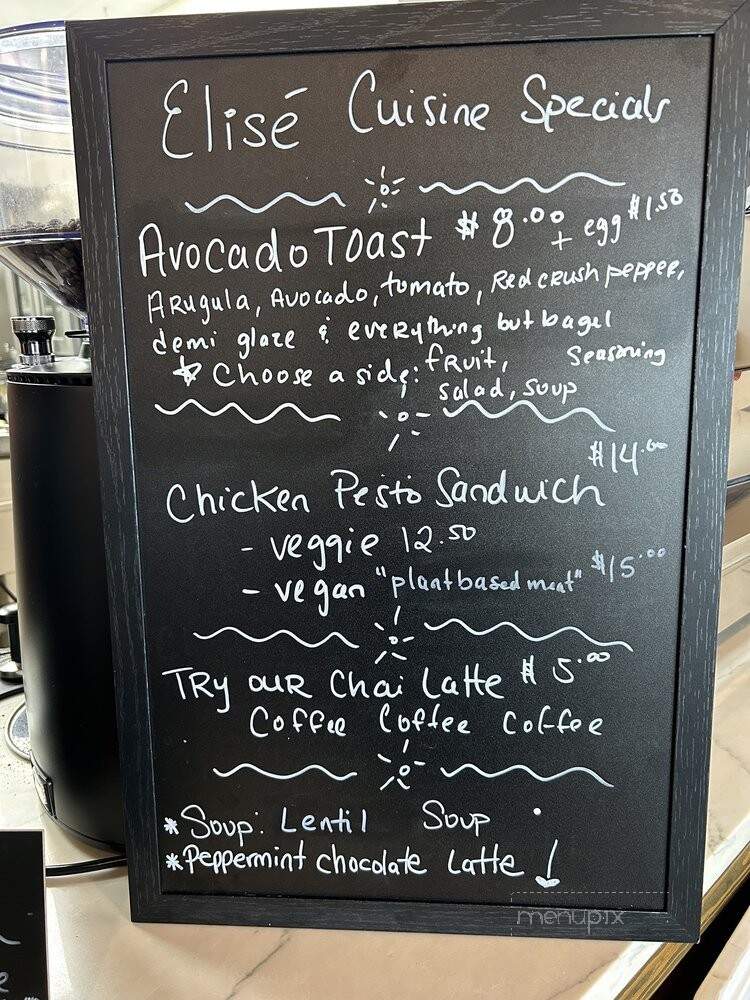 Elisé Cuisine Specials
Avocado Toast $8.00 + egg $1.50
Arugula, Avocado, tomato, Red crush pepper,
demi glaze & everything but bagel
Seasoning
* Choose a side: fruit,
salad, soup
$14.00
Chicken Pesto Sandwich
- veggie 12.50
- vegan "plantbased meat" $15.00
TRy ouR Chai Latte $5.00
Coffee Coffee Coffee
*Soup: Lentil Soup
*Peppermint chocolate Latte
menupix